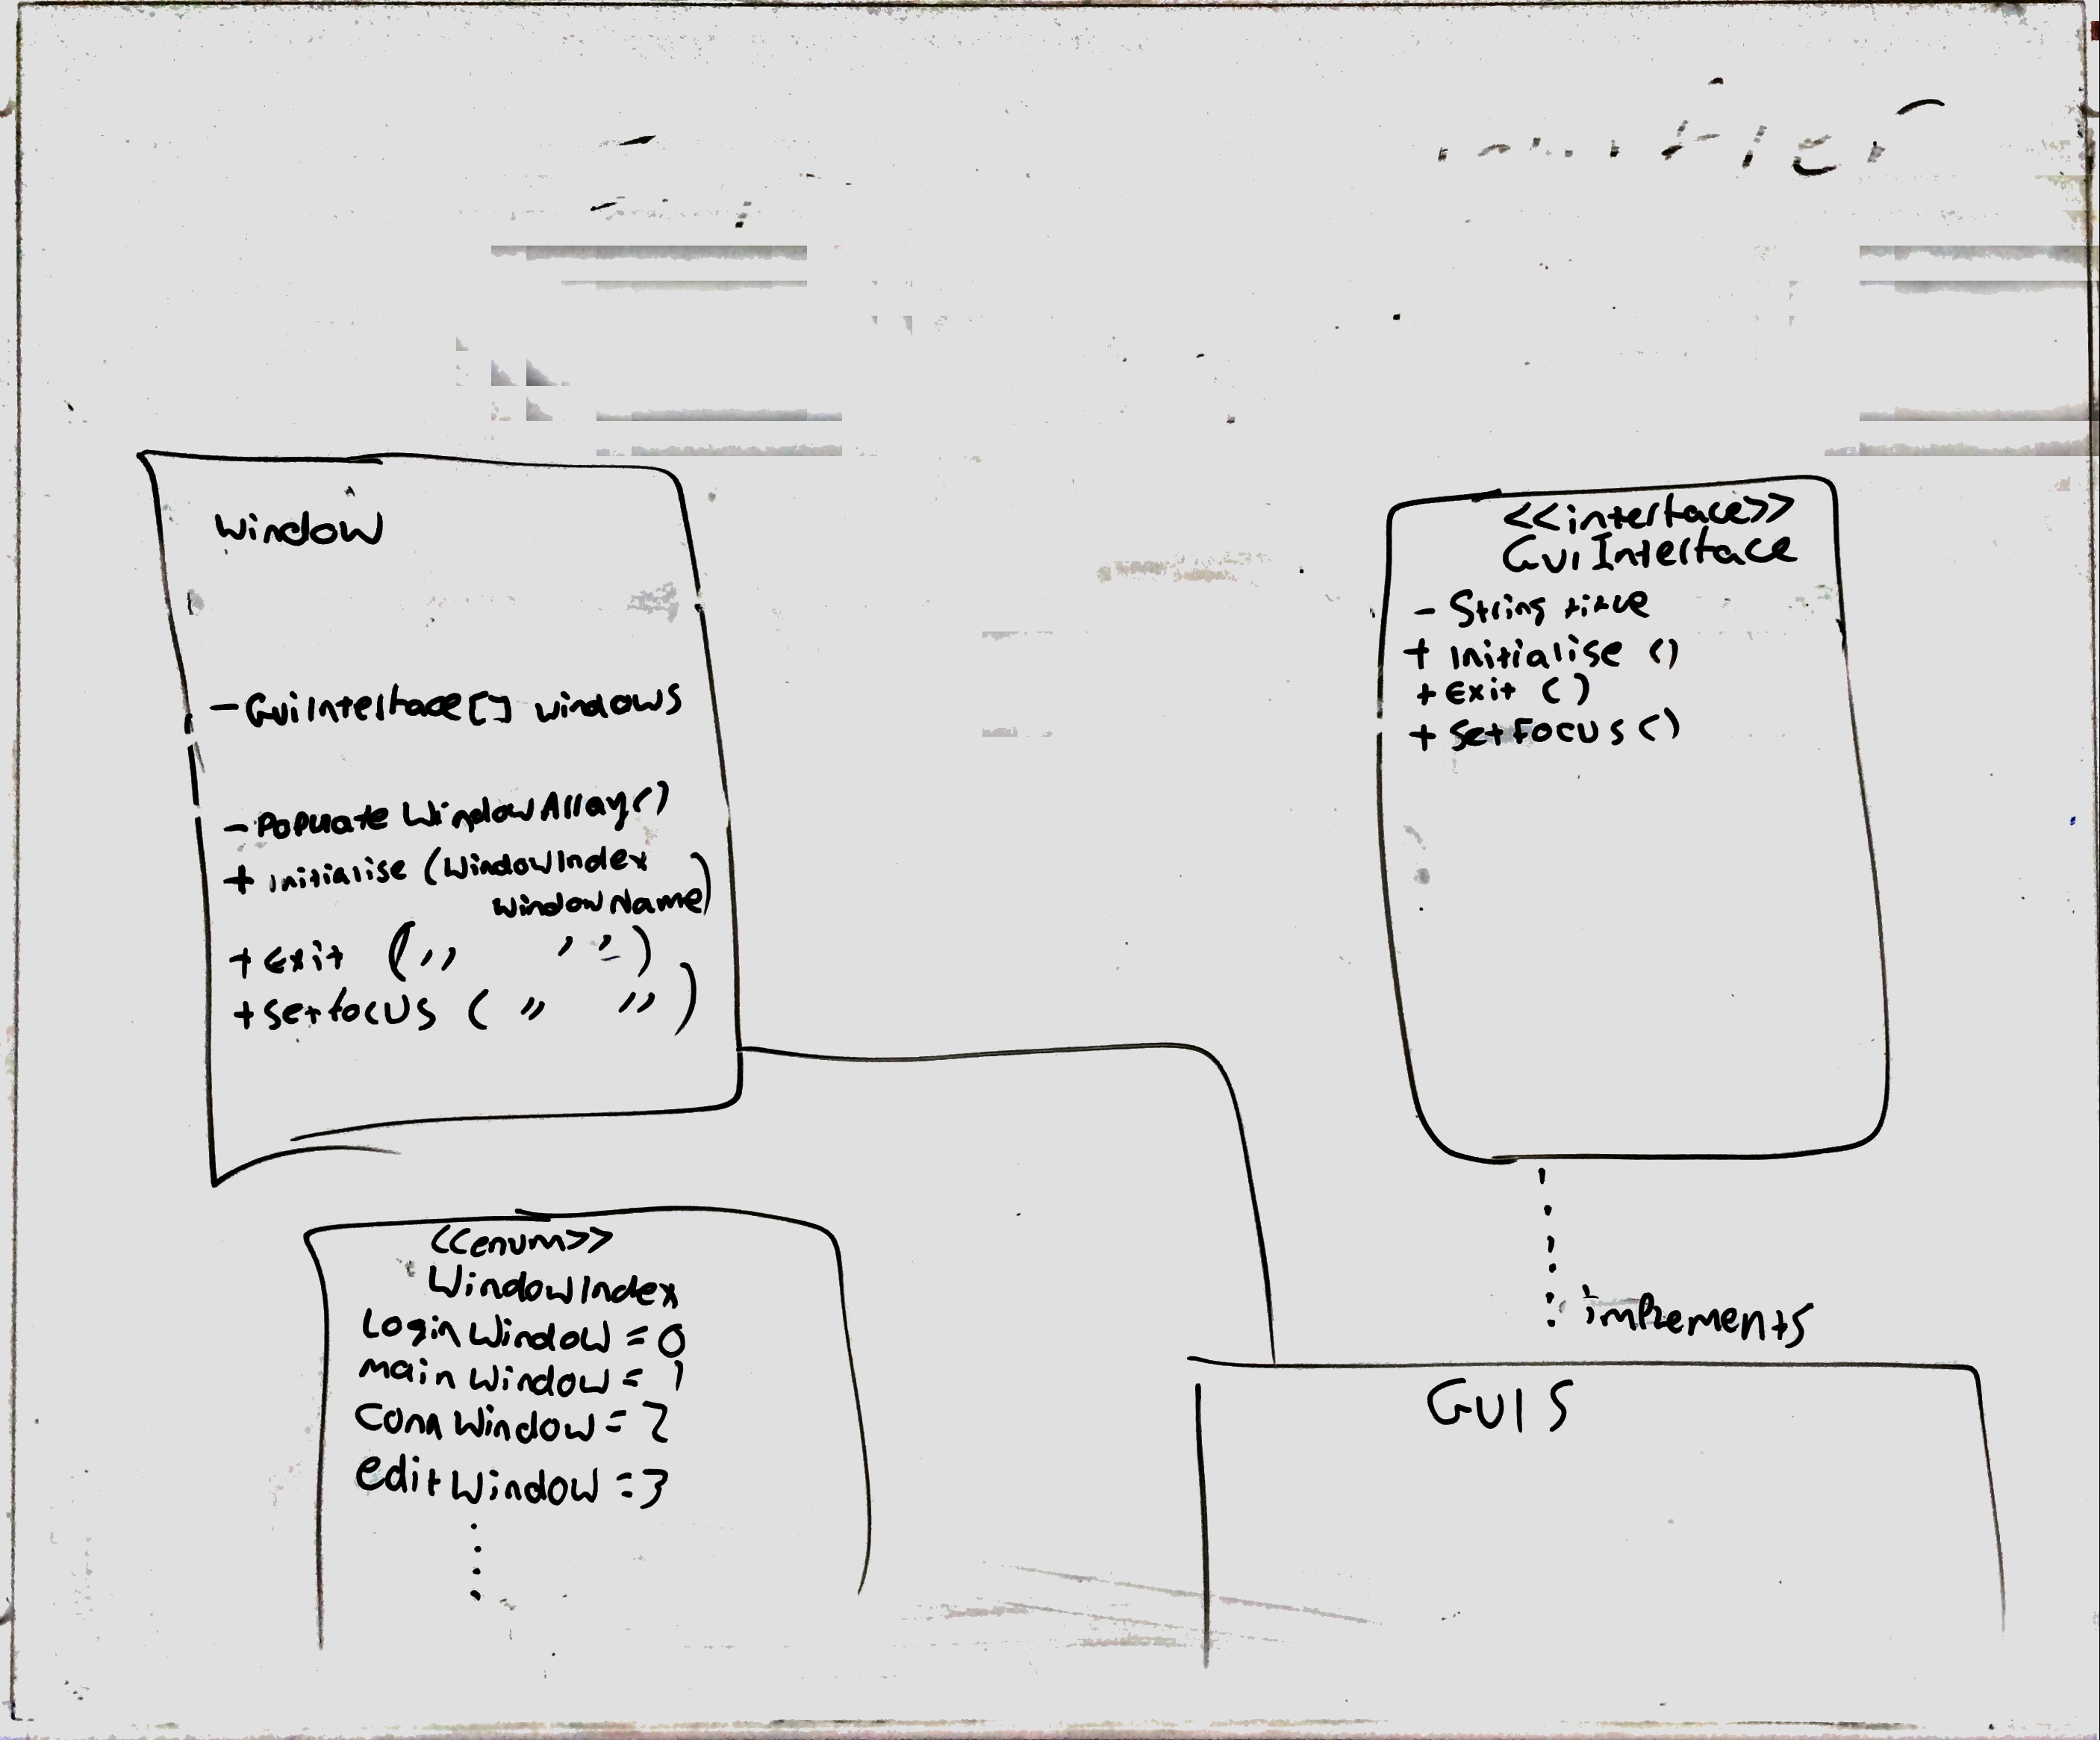 Window
- GuiInterface[] windows
- Popuate WindowArray()
+ initialise (WindowIndex
windowName)
+ Exit (,, ,,)
+ setfocus ( ,, ,, )
<<interface>>
GuiInterface
- String title
+ Initialise ()
+ Exit ()
+ SetFocus ()
<<enum>>
WindowIndex
LoginWindow = 0
mainWindow = 1
ConnWindow = 2
editWindow = 3
implements
GUIS